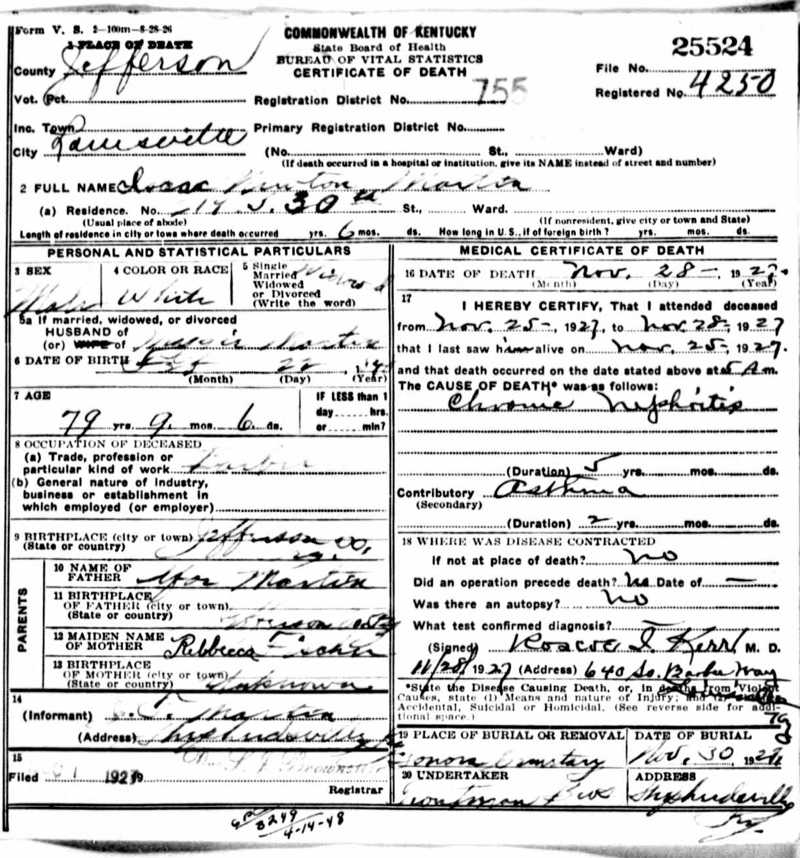 Form V. S. 2-100m-8-28-26
COMMONWEALTH OF KENTUCKY
State Board of Health
BUREAU OF VITAL STATISTICS
CERTIFICATE OF DEATH
25524
File No.
Registered No. 4250
1 PLACE OF DEATH
County Jefferson
Vot. Pct.
Registration District No. 755
Inc. Town
Primary Registration District No.
City Louisville
(No. St., Ward)
(If death occurred in a hospital or institution, give its NAME instead of street and number)
2 FULL NAME Isaac Newton Martin
(a) Residence. No. 217 S. 30th St., Ward.
(Usual place of abode) (If nonresident, give city or town and State)
Length of residence in city or town where death occurred yrs. 6 mos. ds. How long in U.S., if of foreign birth? yrs. mos. ds.
PERSONAL AND STATISTICAL PARTICULARS
3 SEX
Male
4 COLOR OR RACE
White
5 Single
Married
Widowed
or Divorced
(Write the word)
5a If married, widowed, or divorced
HUSBAND of
(or) WIFE of Martin
6 DATE OF BIRTH Feb 22
(Month) (Day) (Year)
7 AGE
79 yrs. 9 mos. 6 ds.
IF LESS than 1
day hrs.
or min?
8 OCCUPATION OF DECEASED
(a) Trade, profession or
particular kind of work
(b) General nature of industry,
business or establishment in
which employed (or employer)
9 BIRTHPLACE (city or town) Jefferson Co.
(State or country) Ky.
PARENTS
10 NAME OF
FATHER Martin
11 BIRTHPLACE
OF FATHER (city or town)
(State or country)
12 MAIDEN NAME
OF MOTHER Rebbecca
13 BIRTHPLACE
OF MOTHER (city or town)
(State or country) Unknown
14
(Informant) Martin
(Address) Shepherdsville Ky
15
Filed 1927
Registrar
MEDICAL CERTIFICATE OF DEATH
16 DATE OF DEATH Nov. 28-, 1927.
(Month) (Day) (Year)
17
I HEREBY CERTIFY, That I attended deceased
from Nov. 25-, 1927, to Nov. 28-, 1927
that I last saw him alive on Nov. 25-, 1927.
and that death occurred on the date stated above at 5 A m.
The CAUSE OF DEATH* was as follows:
Chronic Nephritis
(Duration) 5 yrs. mos. ds.
Contributory Asthma
(Secondary)
(Duration) 2 yrs. mos. ds.
18 WHERE WAS DISEASE CONTRACTED
If not at place of death? No
Did an operation precede death? No Date of —
Was there an autopsy? No
What test confirmed diagnosis?
(Signed) Roscoe I. Kerr M. D.
11/28, 1927 (Address) 640 So. Barbee Way
*State the Disease Causing Death, or, in deaths from Violent
Causes, state (1) Means and nature of Injury; and (2) whether
Accidental, Suicidal or Homicidal. (See reverse side for addi-
tional space.)
79
19 PLACE OF BURIAL OR REMOVAL
Cemetary
DATE OF BURIAL
Nov. 30, 1927
20 UNDERTAKER
Troutman Bros
ADDRESS
Shepherdsville
Ky
8249
4-14-48